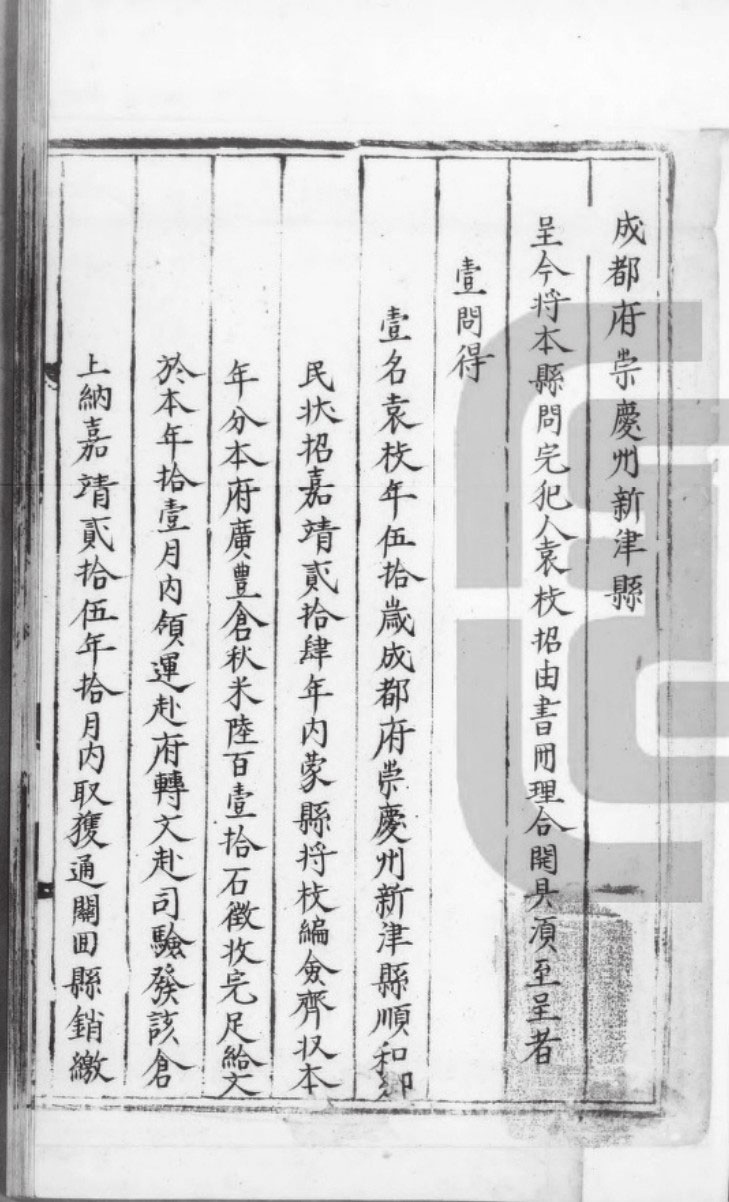 成都府崇慶州新津縣
呈今將本縣問完犯人袁枝招由書冊理合開具湏至呈者
壹問得
壹名袁枝年伍拾歲成都府崇慶州新津縣順和鄉
民狀招嘉靖貳拾肆年內蒙縣將枝編僉齊収本
年分本府廣豐倉秋米陸百壹拾石徵收完足給文
於本年拾壹月內領運赴府轉文赴司驗發該倉
上納嘉靖貳拾伍年拾月內取獲通關囬縣銷繳